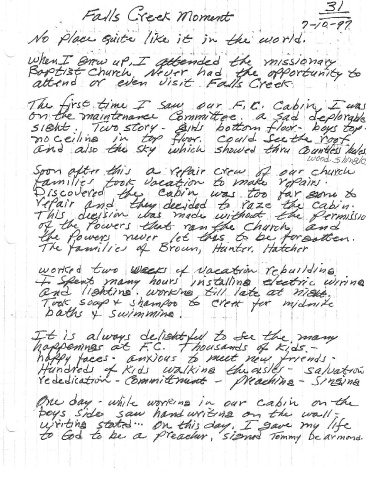 Falls Creek Moment
31
7-10-97
No place quite like it in the world.
When I grew up, I attended the missionary
Baptist Church. Never had the opportunity to
attend or even visit Falls Creek.
The first time I saw our F.C. Cabin, I was
on the maintenance Committee. a sad deplorable
sight. Two story - girls bottom floor - boys top -
no ceiling in top floor. Could see the roof
and also the sky which showed thru countless holes
wood shingles
Soon after this a repair crew of our church
families took vacation to make repairs.
Discovered the cabin was too far gone to
repair and they decided to raze the cabin.
This decision was made without the permission
of the Powers that ran the Church, and
the powers never let this to be forgotten.
The families of Brown, Hunter, Hatcher
worked two weeks of vacation rebuilding
I spent many hours installing electric wiring
and lighting. working till late at nite.
Took soap & shampo to creek for midnite
baths & swimming.
It is always delightful to see the many
happenings at F.C. Thousands of kids. -
happy faces - anxious to meet new friends -
Hundreds of kids walking the aisles - salvation
rededication - Commitment - preaching - singing
One day - while working in our cabin on the
boys side saw handwriting on the wall -
writing stated... On this day, I gave my life
to God to be a preacher, signed Tommy